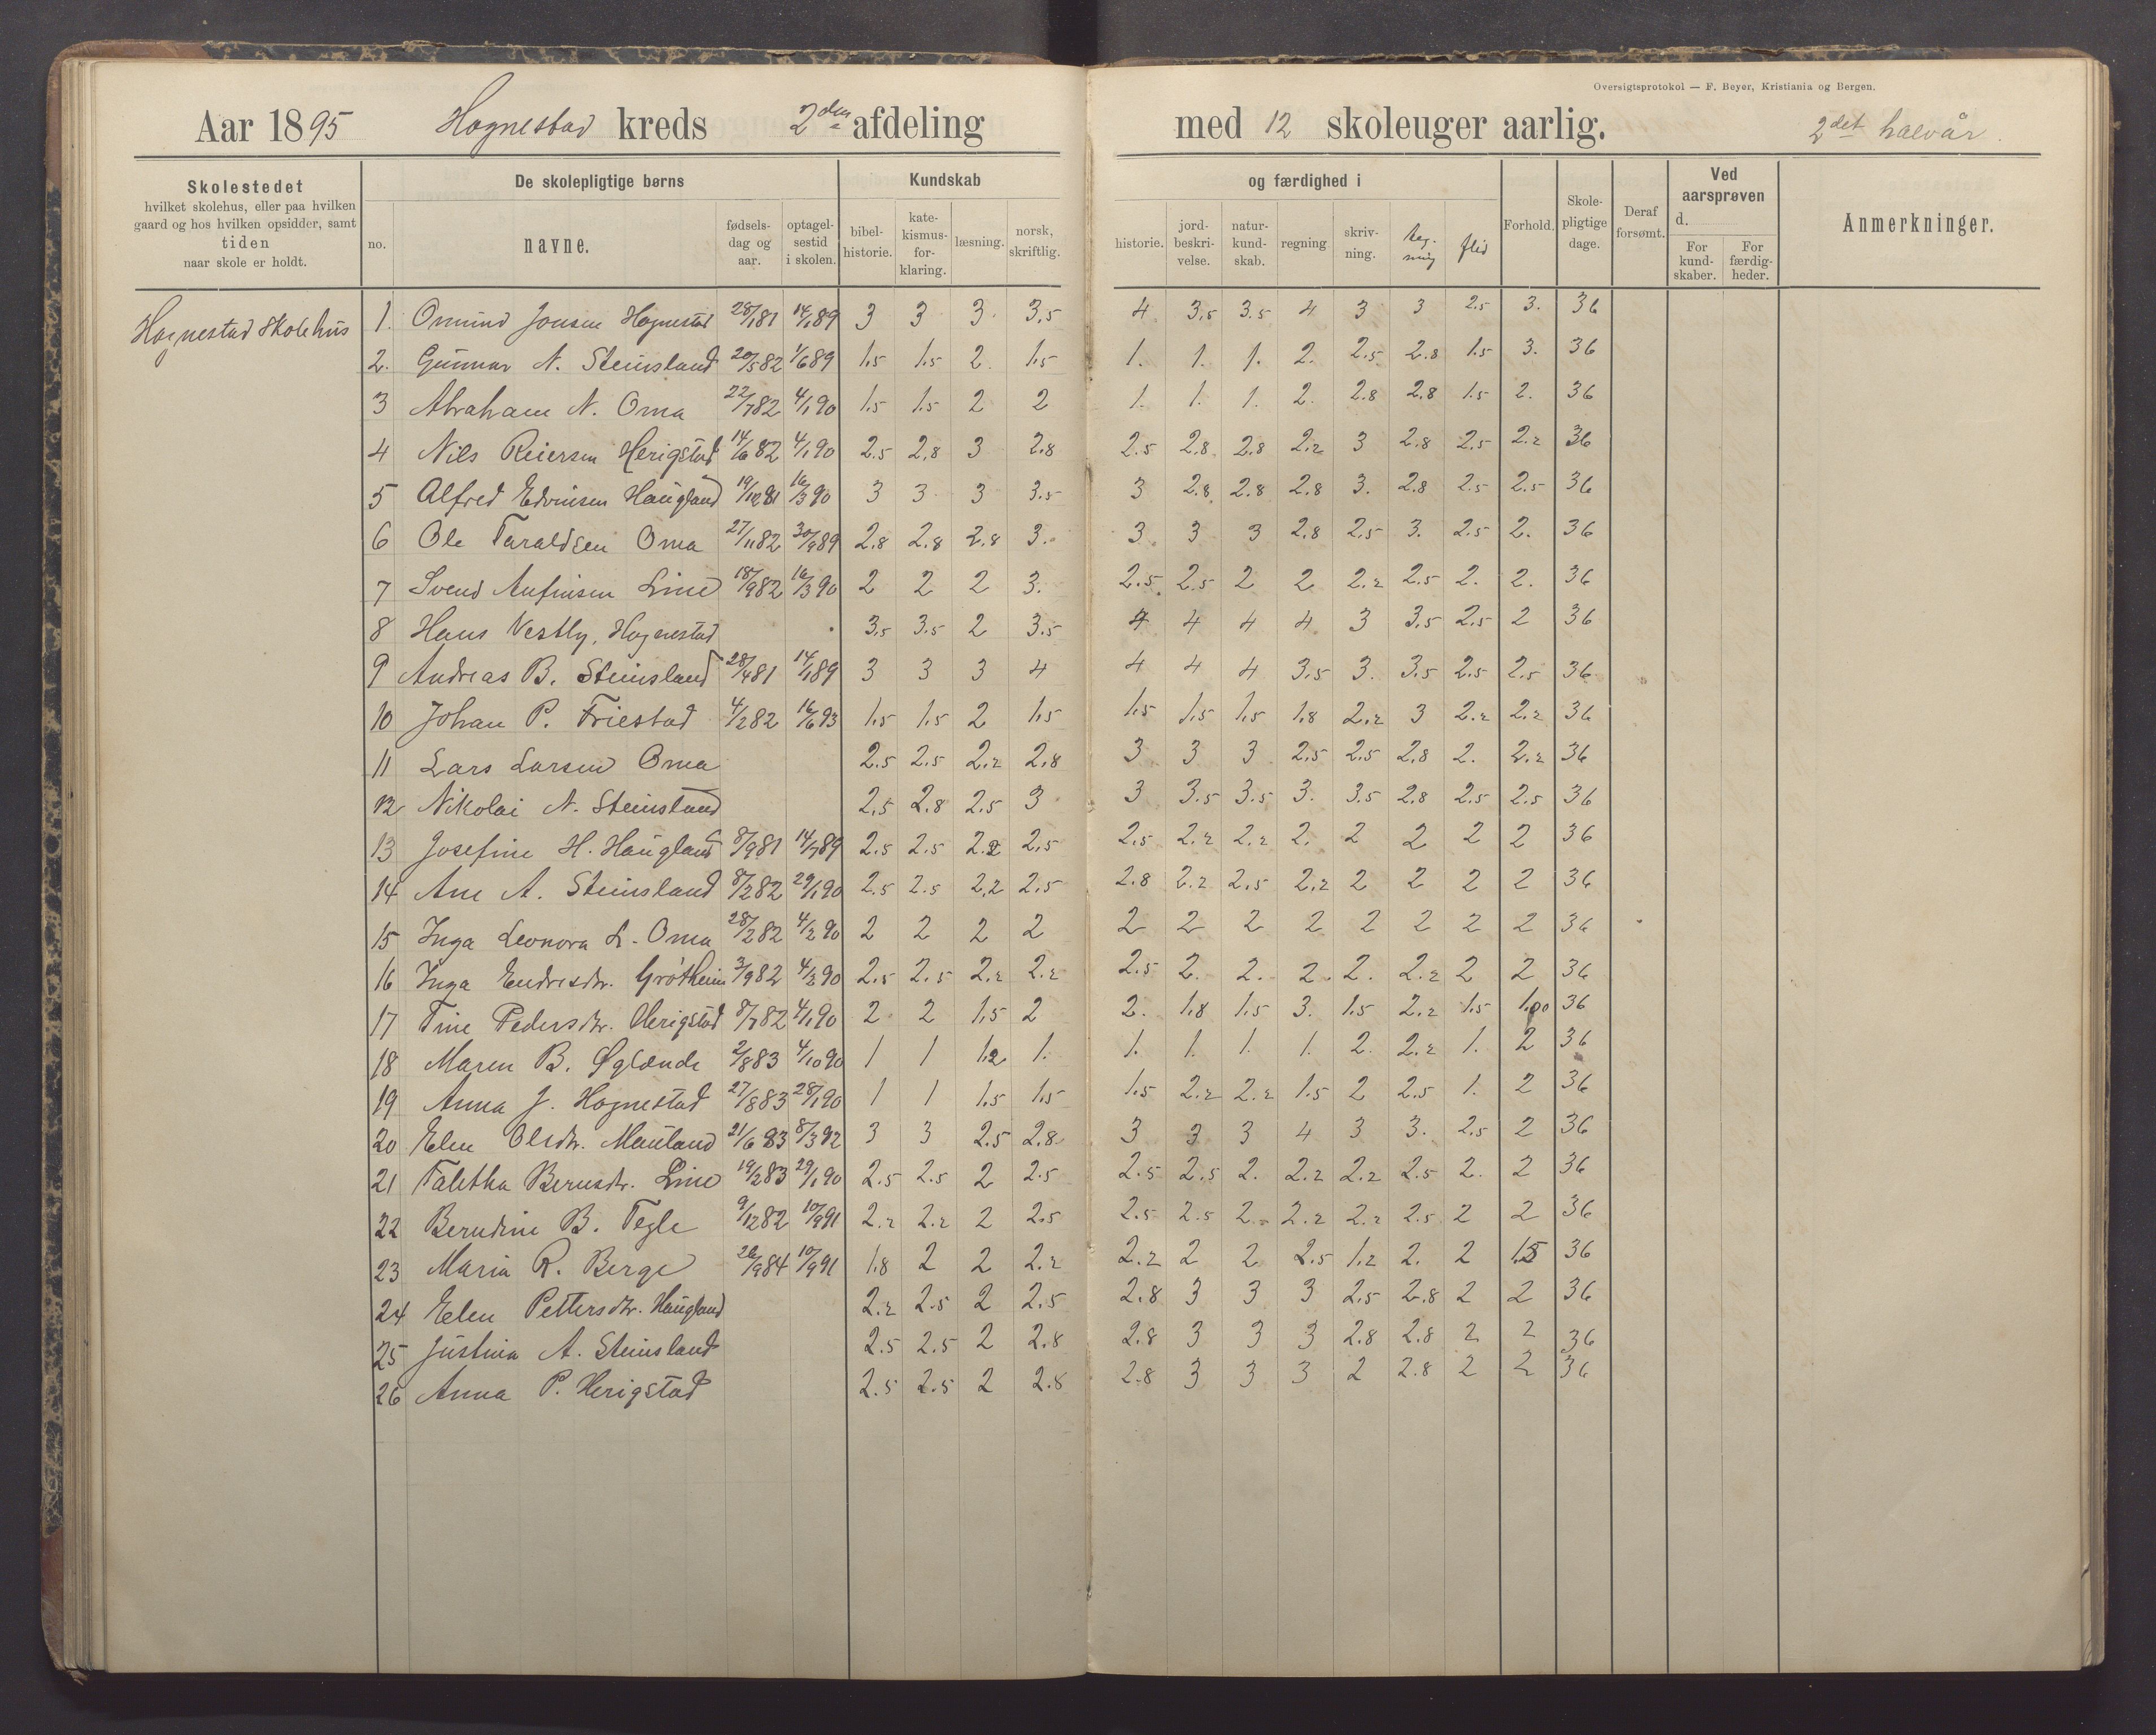 Oversigtsprotokol — F. Beyer, Kristiania og Bergen.
Aar 1895 Hognestad kreds 2den afdeling med 12 skoleuger aarlig. 2det halvår.
Skolestedet hvilket skolehus, eller paa hvilken gaard og hos hvilken opsidder, samt tiden naar skole er holdt.
De skolepligtige børns
no. navne. fødselsdag og aar. optagelsestid i skolen.
Kundskab og færdighed i
bibelhistorie. katekismusforklaring. læsning. norsk, skriftlig. historie. jordbeskrivelse. naturkundskab. regning skrivning. Tegning flid
Forhold. Skolepligtige dage. Deraf forsømt. Ved aarsprøven d. For kundskaber. For færdigheder. Anmerkninger.
Hognestad Skolehus
1. Omund Jonsen Hognestad 28/1 81 14/1 89 3 3 3. 3,5 4. 3,5 3.5 4. 3 3 2.5 3. 36
2. Gunnar N. Steinsland 20/5 82 1/6 89 1.5 1.5 2. 1.5 1. 1. 1. 2. 2.5 2.8 1.5 3. 36
3 Abraham N. Oma 22/7 82 4/1 90 1.5 1.5 2 2 1. 1. 1. 2. 2.8 2.8 1.5 2. 36
4 Nils Reiersen Herigstad 14/6 82 4/1 90 2.5 2,8 3 2.8 2.5 2.8 2.8 2.2 3 2.8 2.5 2.2 36
5 Alfred Edvinsen Haugland 19/12 81 16/3 90 3 3 3 3.5 3 2.8 2.8 2.8 3. 2.8 2.5 2.5 36
6 Ole Taraldsen Oma 27/11 82 30/9 89 2.8 2.8 2.8 3. 3 3 3 2.8 2.5 3. 2.5 2. 36
7 Svend Anfinsen Line 18/9 82 16/3 90 2 2 2 3. 2.5 2.5 2 2 2.2 2.5 2. 2. 36
8 Hans Vestly, Hognestad 3.5 3.5 2 3.5 4 4 4 4 3 3.5 2.5 2 36
9 Andreas B. Steinsland 28/4 81 14/1 89 3 3 3 4 4 4 4 3.5 3. 3.5 2.5 2.5 36
10 Johan P. Friestad 4/2 82 16/6 93 1.5 1.5 2 1.5 1.5 1.5 1.5 1.8 2.2 3 2.2 2.2 36
11 Lars Larsen Oma 2.5 2.5 2.2 2.8 3 3 3 2.5 2.5 2.8 2. 2.2 36
12 Nikolai N. Steinsland 2.5 2.8 2.5 3 3 3.5 3.5 3. 3.5 2.8 2.5 2.5 36
13 Josefine H. Haugland 8/9 81 14/7 89 2.5 2.5 2.2 2.5 2.5 2.2 2.2 2. 2 2 2 2 36
14 Ane A. Steinsland 8/2 82 29/1 90 2.5 2.5 2.2 2.5 2.8 2.2 2.5 2.2 2 2 2 2 36
15 Inga Leonora L. Oma 28/2 82 4/2 90 2 2 2 2 2 2 2 2 2 2 2 2 36
16 Inga Endresdtr. Grötheim 3/9 82 4/2 90 2.5 2.5 2.2 2.2 2.5 2. 2. 2. 2. 2.2 2 2 36
17 Tine Pedersdtr. Herigstad 8/7 82 4/1 90 2 2 1.5 2 2. 1.8 1.5 3. 1.5 2.2 1.5 36
18 Maren B. Øglænde 2/8 83 4/10 90 1 1 1.2 1. 1. 1. 1. 1. 2. 2.2 1. 2 36
19 Anna J. Hognestad 27/8 83 28/1 90 1 1 1.5 1.5 1.5 2.2 2.2 1.5 2 2.5 1. 2 36
20 Elen Olsdtr. Mauland 21/6 83 8/3 92 3 3 2.5 2.8 3 3 3 4 3 3. 2.5 2 36
21 Taletha Bernsdtr. Line 19/2 83 29/1 90 2.5 2.5 2 2.5 2.5 2.5 2. 2.2 2.2 2.5 2. 2 36
22 Berndine B. Tegle 9/12 82 10/9 91 2.2 2.2 2 2.5 2.5 2.5 2. 2.2 2.2 2.5 2 2 36
23 Maria R. Berge 26/9 84 10/9 91 1.8 2 2 2.2 2.2 2 2 2.5 1.2 2. 2 1.5 36
24 Elen Pettersdtr. Haugland 2.2 2.5 2 2.5 2.8 3 3 3 2.5 2.8 2 2 36
25 Justina A. Steinsland 2.5 2.5 2 2.8 2.8 3 3 3 2.8 2.8 2 2 36
26 Anna P. Herigstad 2.5 2.5 2 2.8 2.8 3 3 3 2 2.8 2 2 36